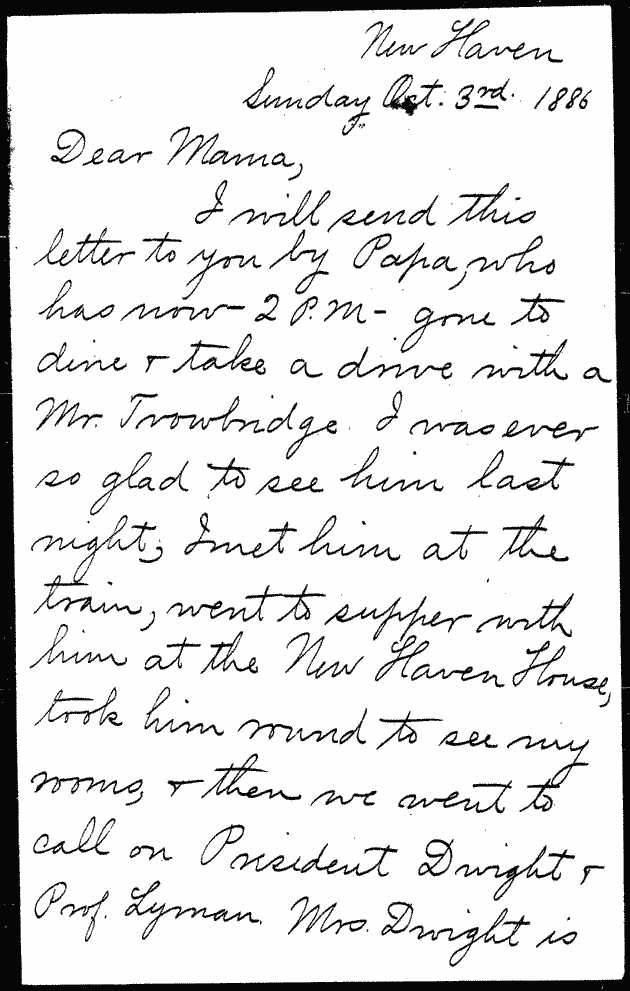 New Haven
Sunday Oct. 3rd. 1886
Dear Mama,
I will send this
letter to you by Papa, who
has now - 2 P.M - gone to
dine & take a drive with a
Mr. Trowbridge. I was ever
so glad to see him last
night; I met him at the
train, went to supper with
him at the New Haven House,
took him round to see my
rooms, & then we went to
call on President Dwight &
Prof. Lyman. Mrs. Dwight is